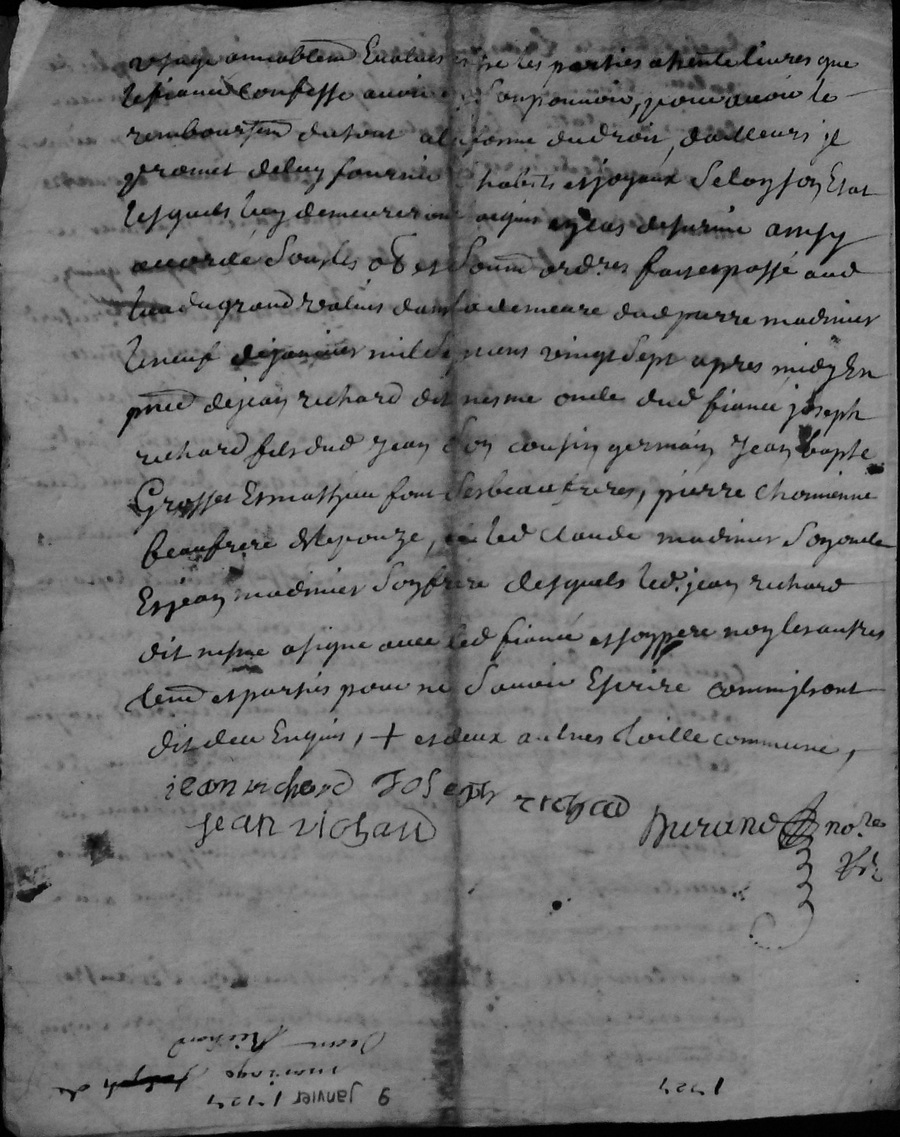 usage amiablemt Evalués entre les parties a trente livres que
le fiancé Confesse avoir en Son pouvoir, pour avoir le
remboursemt du tout a la forme du droit, dailleurs il
promet de luy fournir habits et joyaux Selon son Estat
lesquels luy demeureront acquis en cas de survie ainsy
accordé Soubs les ob et Soum ordres fait et passé aud
lieu du grand dans la demeure dud pierre madinier
le neuf de janvier mil Sept cens vingt Sept apres midy En
pnce de jean richard dit nesme oncle dud fiancé joseph
richard fils dud jean Son cousin germain jean bapte
Grosset Et mathieu four Ses beaufreres, pierre chomienne
beaufrere de lepouze, led Claude madinier Son oncle
Et jean madinier Son frere desquels led. jean richard
dit nesme a signé avec led fiancé et son pere non les autres
temd et parties pour ne Savoir Escrire comm ils ont
dit deu Enquis, + et deux autres toille commune,
jean richard Joseph richad
jean richard
Durand nore
Rl
1727
9 janvier 1727
mariage de
Jean Richard